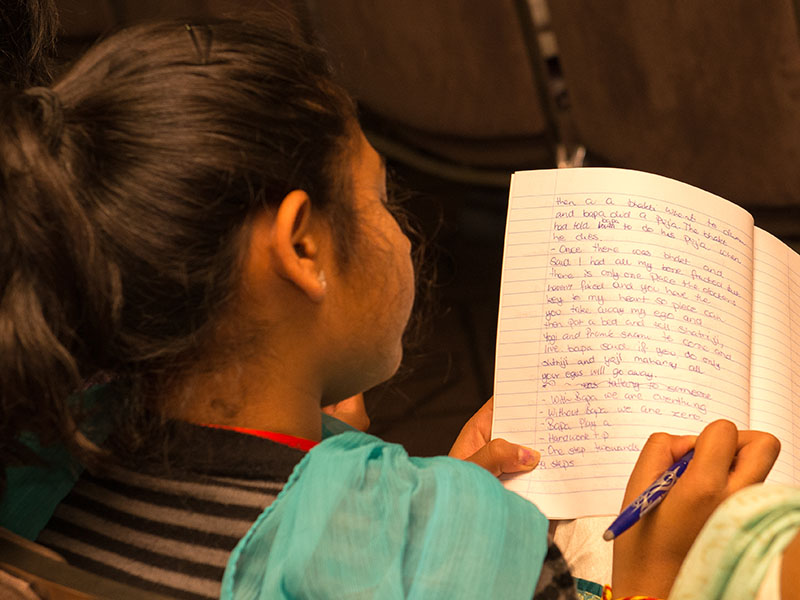 then a a bhakti wants to damn
and bapa did a Puja. The bhakti
had told bapa to do his Puja when
he dies.
- Once there was bhakt and
Said I had all my bone fractied but
there is only one place the doctors
havent faled and you have the
key to my heart so please can
you take away my ego and
then put a bed and call Shastriji,
Yogi and Pramik swami to come and
live. bapa said if you do this
Sidhiji and yoji maharaj all
your egos will go away.
- With Bapa we are everything
- Without Bapa we are zero
- Bapa Puja a
- Handwork + p
- One step towards
4 steps